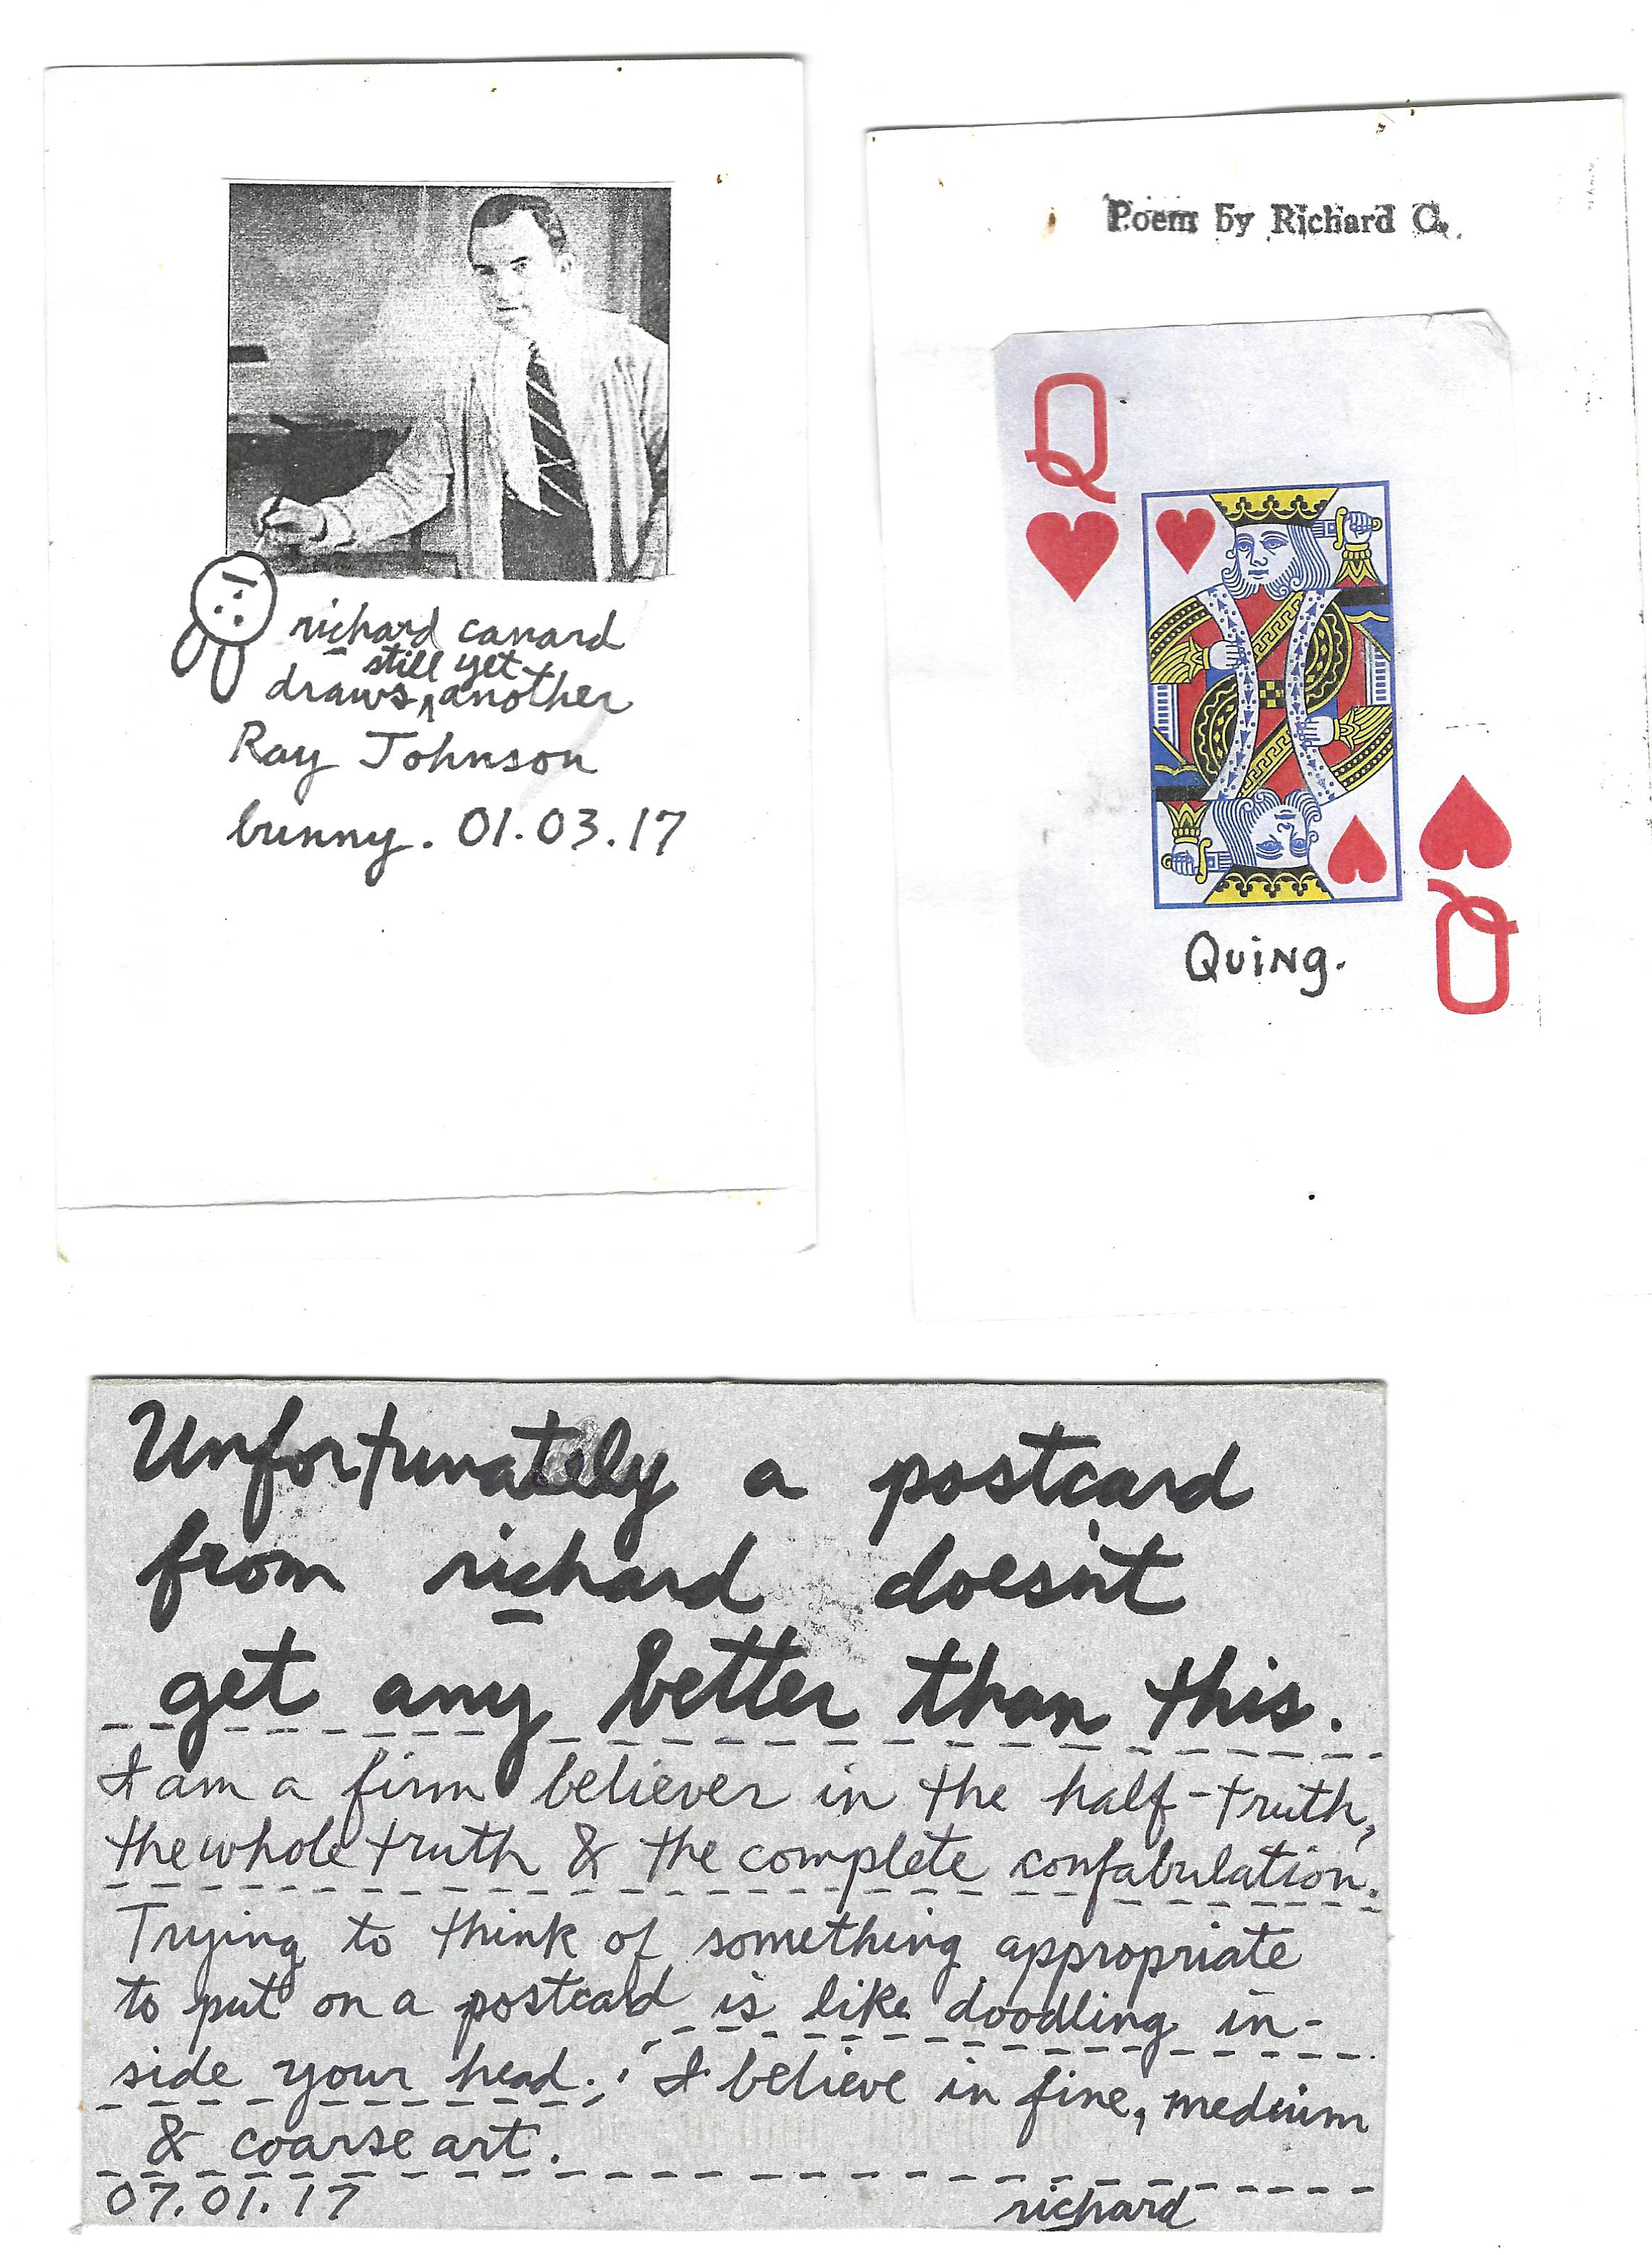 richard canard
still yet
draws ^ another
Ray Johnson
bunny. 01.03.17
Poem by Richard C.
Q
Quing.
Q
Unfortunately a postcard
from richard doesn't
get any better than this.
I am a firm believer in the half-truth,
the whole truth & the complete confabulation.
Trying to think of something appropriate
to put on a postcard is like doodling in-
side your head. I believe in fine, medium
& coarse art.
07.01.17 richard